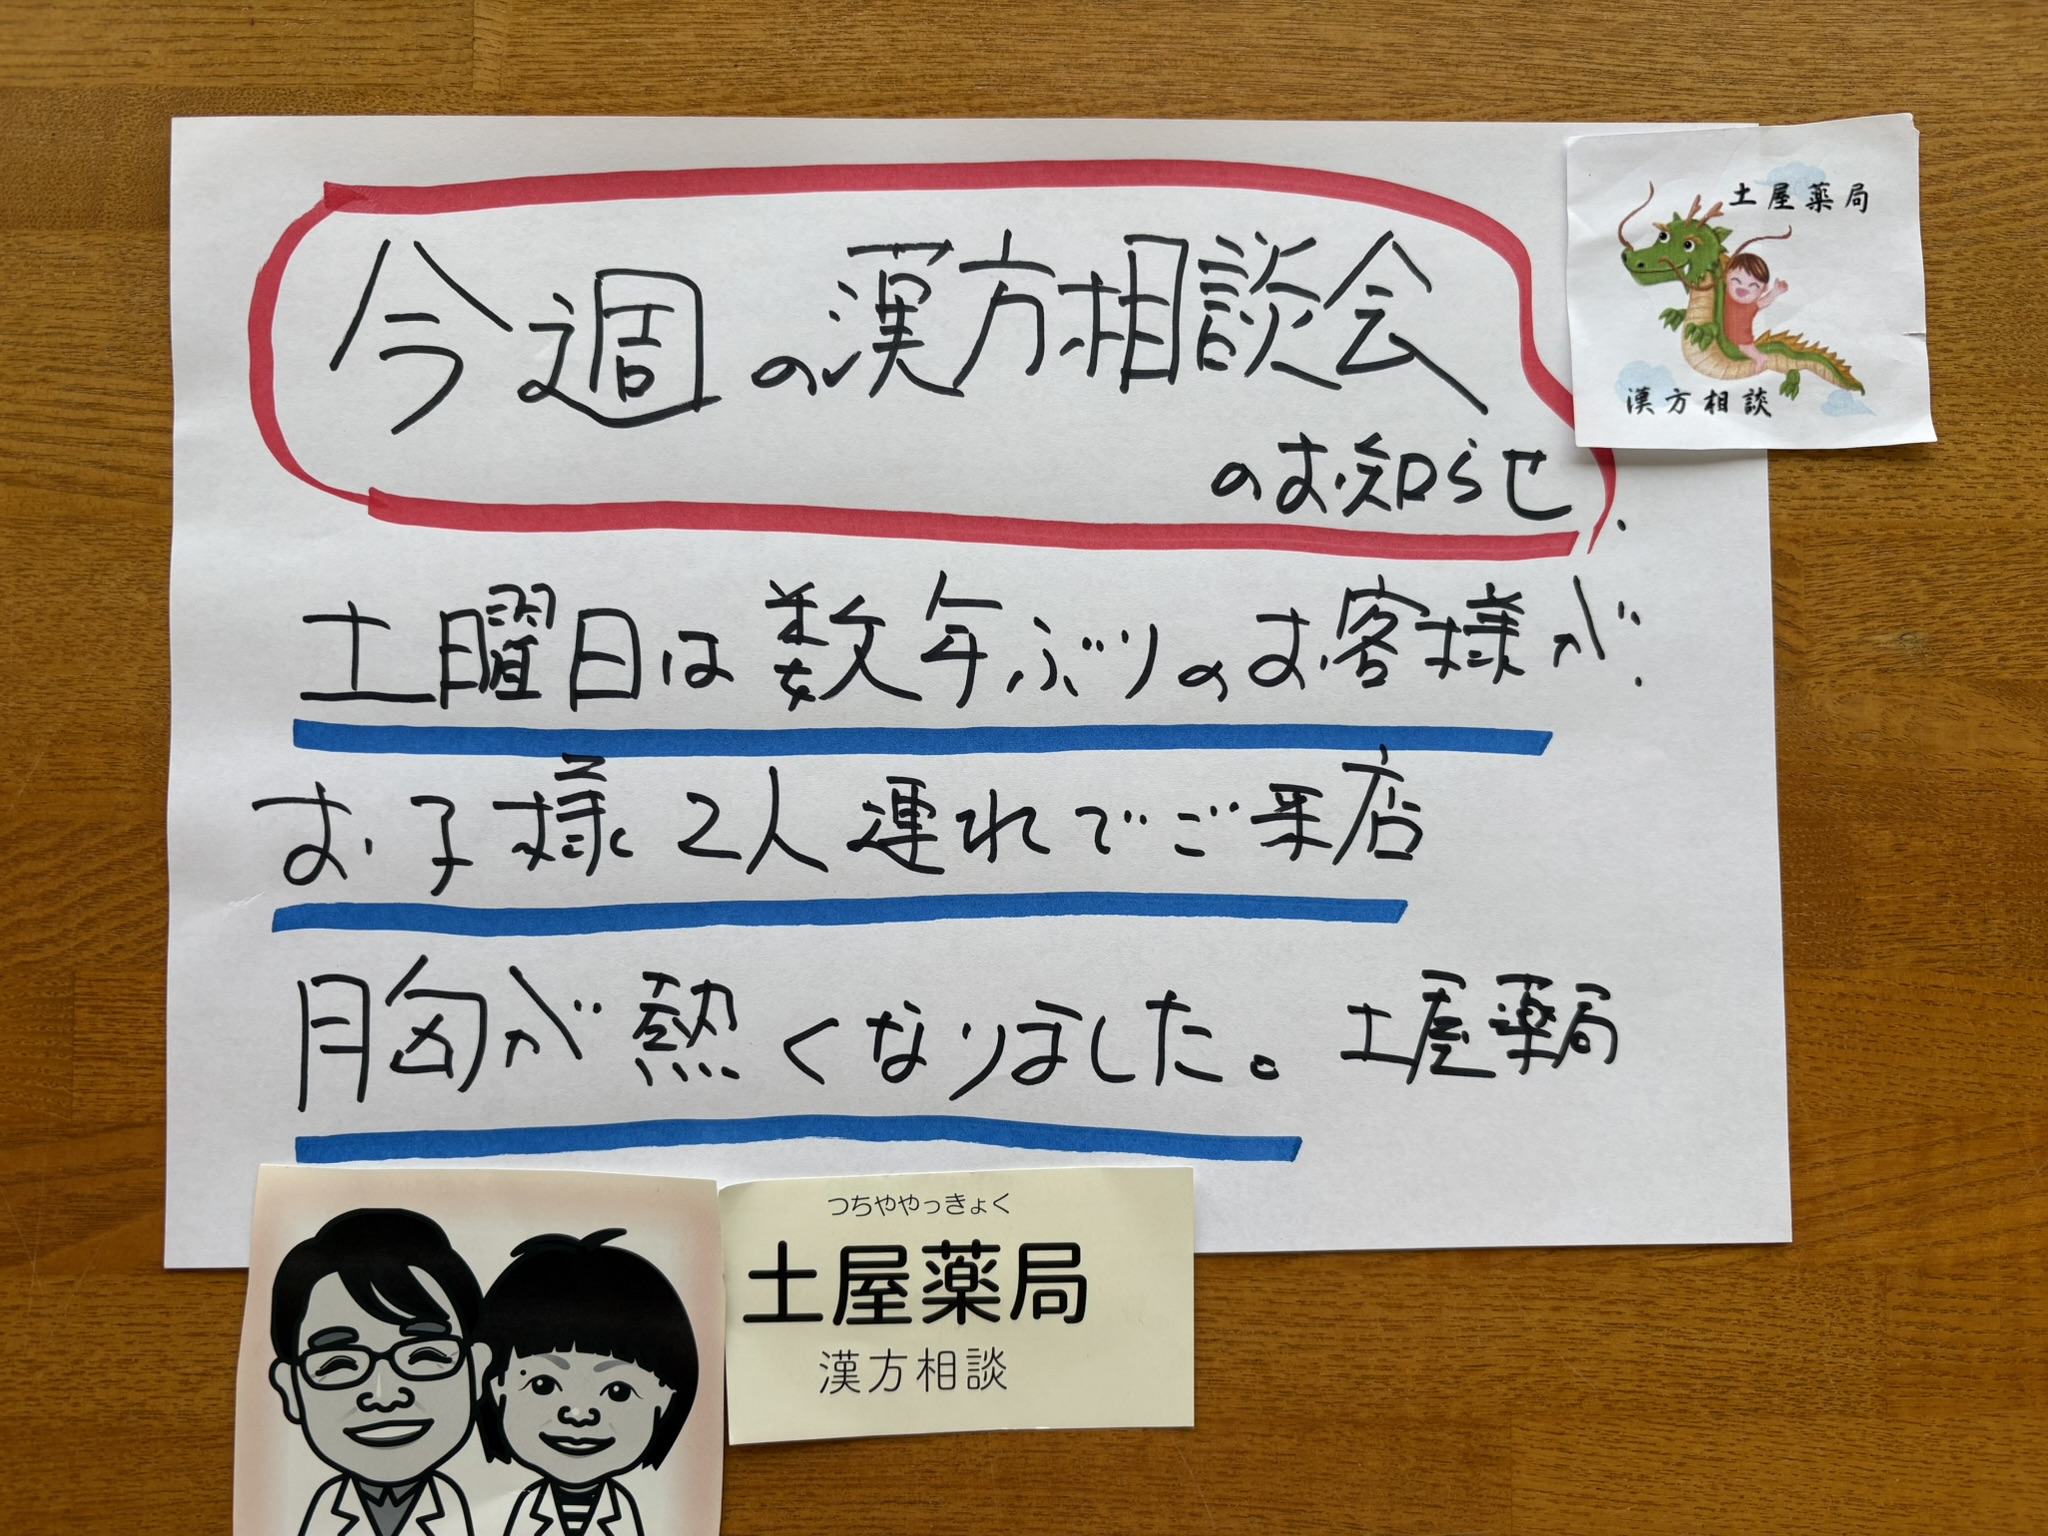 今週の漢方相談会
のお知らせ
土曜日は数年ぶりのお客様が
お子様2人連れでご来店
胸が熱くなりました。土屋薬局
土屋薬局
漢方相談
つちややっきょく
土屋薬局
漢方相談